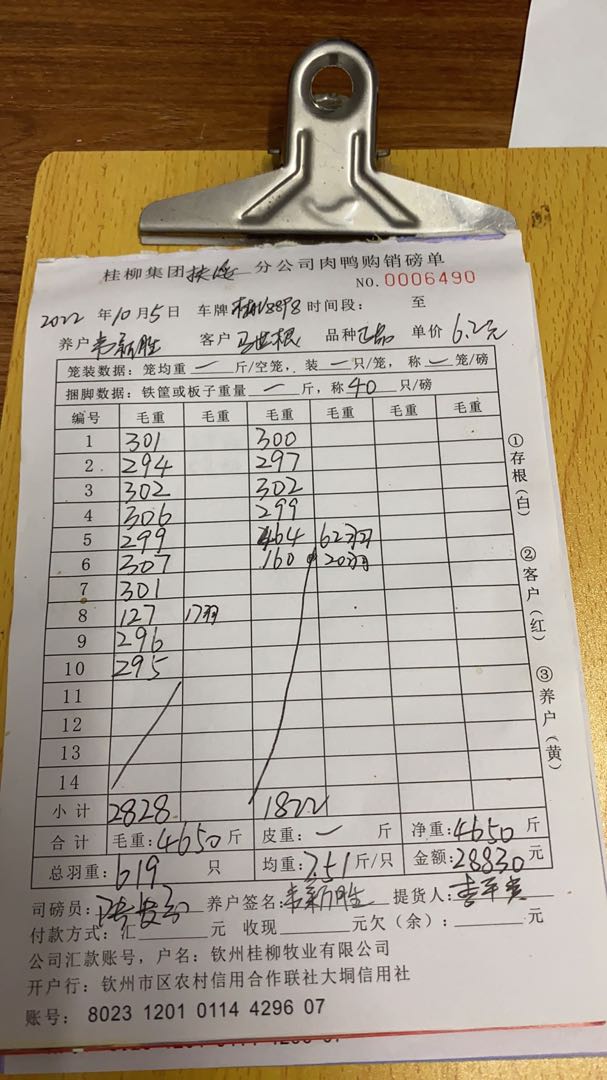 桂柳集团扶绥分公司肉鸭购销磅单
NO.0006490
2022年10月5日 车牌 时间段: 至
养户韦新胜 客户马世根 品种正品 单价6.2元
笼装数据:笼均重一斤/空笼,装一只/笼,称一笼/磅
捆脚数据:铁筐或板子重量一斤,称40只/磅
编号 毛重 毛重 毛重 毛重 毛重 毛重
1 301 300
2 294 297
3 302 302
4 306 299
5 299 464 62羽
6 307 160 20羽
7 301
8 127 17羽
9 296
10 295
11
12
13
14
小计 2828 1822
合计 毛重:4650斤 皮重:一斤 净重:4650斤
总羽重:619只 均重:7.51斤/只 金额:28830元
司磅员: 养户签名:韦新胜 提货人:
付款方式:汇 元 收现 元欠(余): 元
公司汇款账号,户名:钦州桂柳牧业有限公司
开户行:钦州市区农村信用合作联社大垌信用社
账号:8023 1201 0114 4296 07
①存根(白)
②客户(红)
③养户(黄)